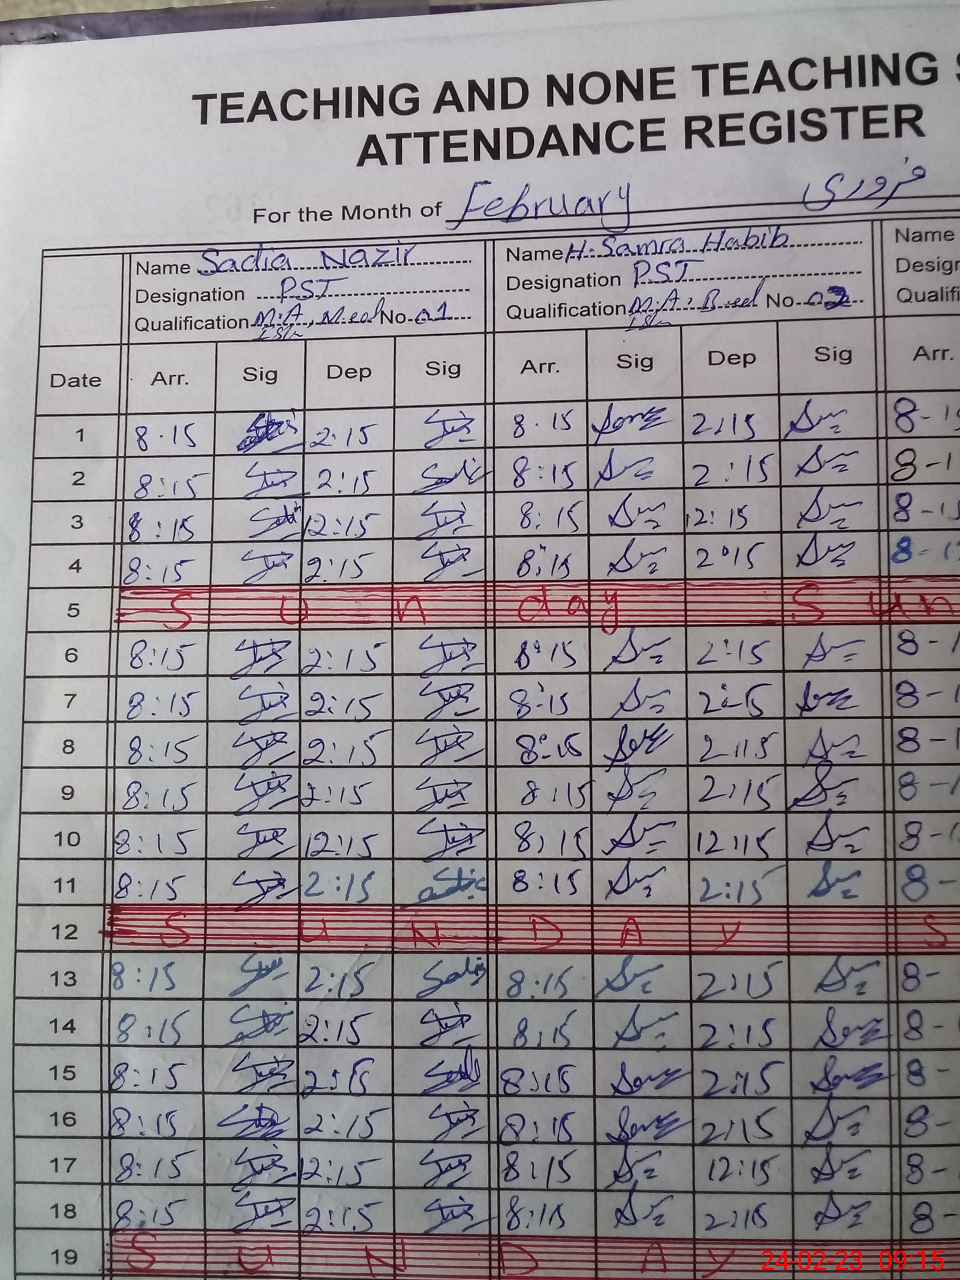 TEACHING AND NONE TEACHING S
ATTENDANCE REGISTER
For the Month of February فروری
Name Sadia Nazir Name H. Samra Habib Name
Designation PST Designation PST Desig
Qualification M.A, M.ed No. 01 Qualification M.A, B.ed No 02 Qualifi
Date Arr. Sig Dep Sig Arr. Sig Dep Sig Arr.
1 8.15 2:15 8.15 2:15 8-1
2 8:15 2:15 8:15 2:15 8-1
3 8:15 12:15 8:15 12:15 8-1
4 8:15 2:15 8:15 2:15 8-1
5 S u n day Sun
6 8:15 2:15 8:15 2:15 8-1
7 8:15 2:15 8:15 2:15 8-1
8 8:15 2:15 8:15 2:15 8-1
9 8:15 2:15 8:15 2:15 8-1
10 8:15 12:15 8:15 12:15 8-
11 8:15 2:15 8:15 2:15 8-
12 S U N D A Y S
13 8:15 2:15 8:15 2:15 8-
14 8:15 2:15 8:15 2:15 8-
15 8:15 2:15 8:15 2:15 8-
16 8:15 2:15 8:15 2:15 8-
17 8:15 12:15 8:15 12:15 8-
18 8:15 2:15 8:15 2:15 8-
19 S U N D A Y
24-02-23 09:15